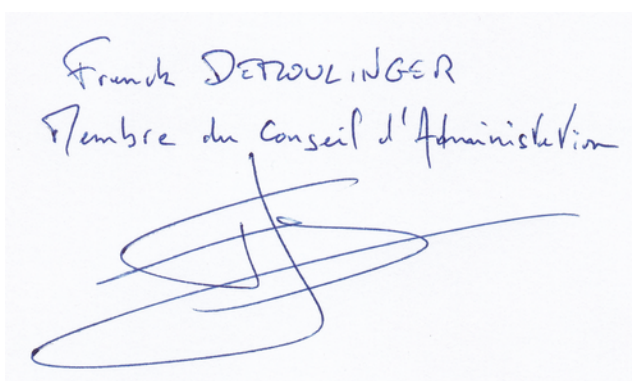 Franck DETROULINGER
Membre du Conseil d'Administration